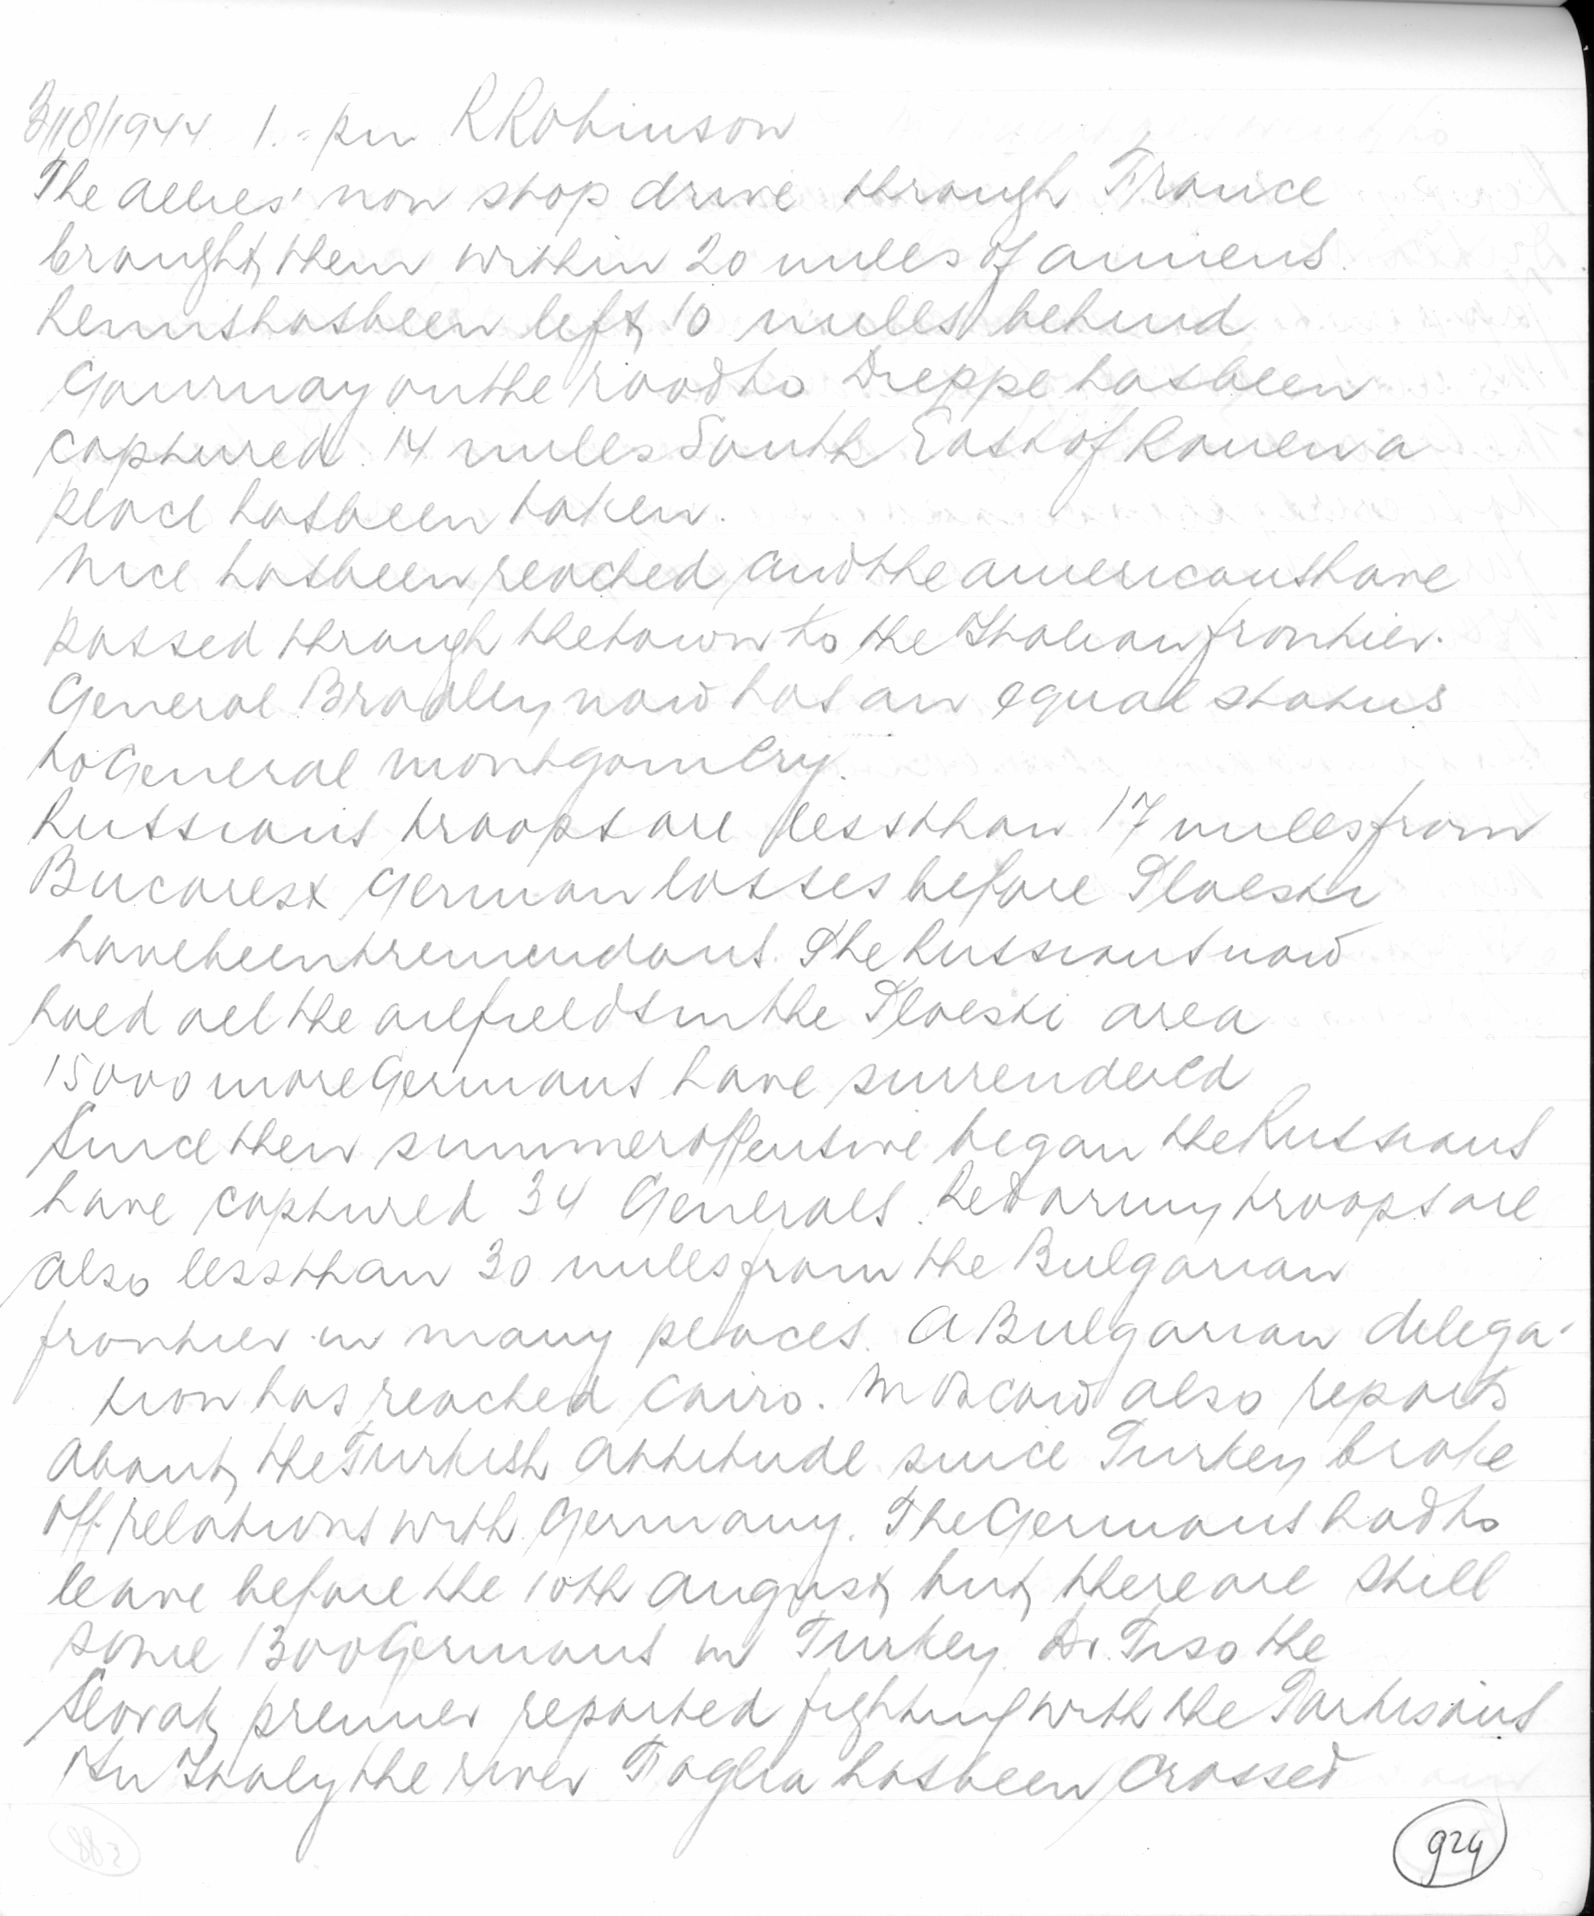 31/8/1944 1.- pm R Robinson
The allies' non stop drive through France
brought them within 20 miles of amiens.
Reims has been left 10 miles behind
Gournay on the road to Dieppe has been
captured. 14 miles South East of Rouen a
place has been taken.
Nice has been reached and the americans have
passed through the town to the Italian frontier.
General Bradley now has an equal status
to General Montgomery.
Russians troops are less than 17 miles from
Bucarest German losses before Ploesti
have been tremendous. The Russians now
hold all the oilfields in the Ploesti area
15000 more Germans have surrendered
Since their summer offensive began the Russians
have captured 34 Generals. Red army troops are
also less than 30 miles from the Bulgarian
frontier in many places. A Bulgarian delega-
tion has reached Cairo. Moscow also reports
about the Turkish attitude since Turkey broke
off relations with Germany. The Germans had to
leave before the 10th august but there are still
some 1300 Germans in Turkey. Dr. Tiso the
Slovak premier reported fighting with the Partisans
In Italy the river Foglia has been crossed
924